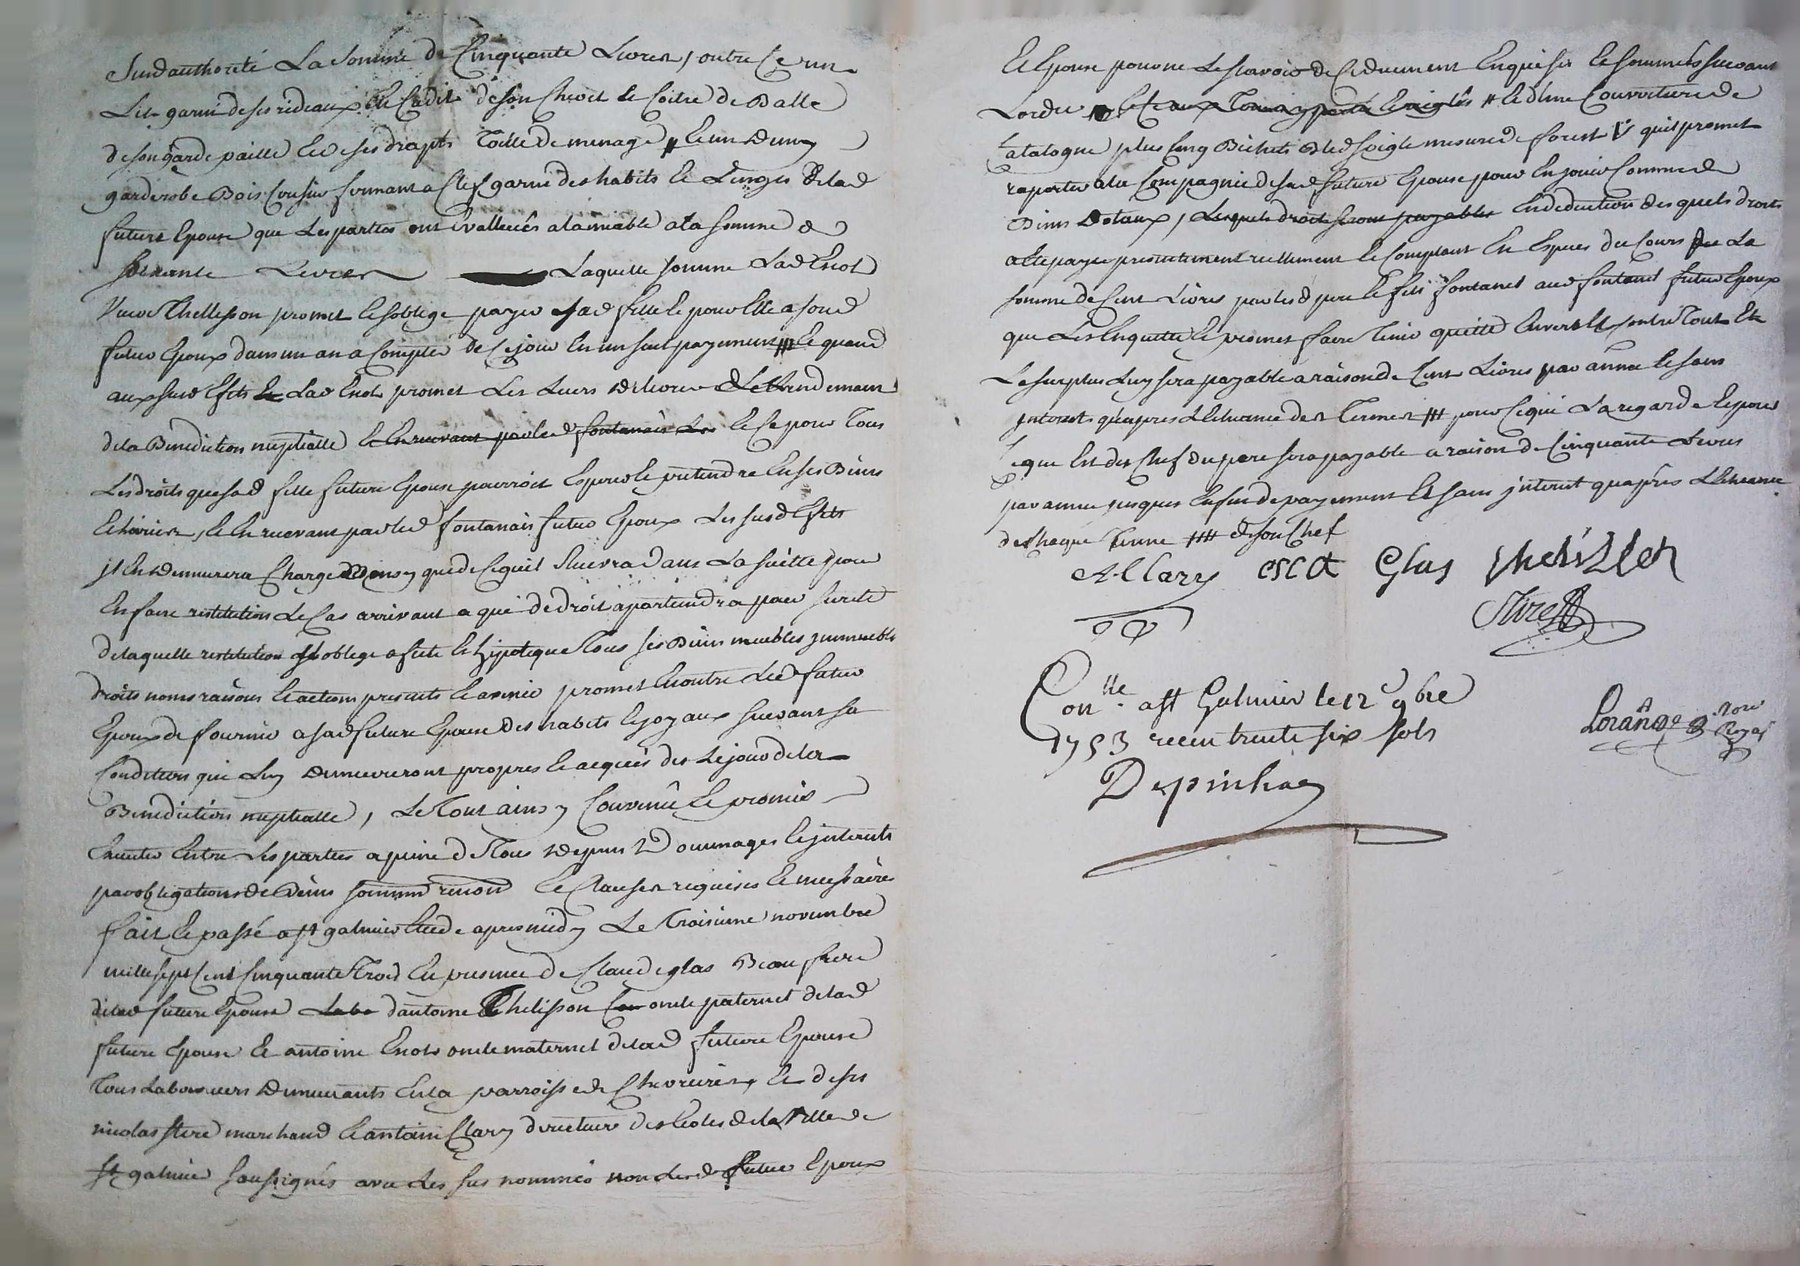 Susd authorité La Somme de Cinquante Livres, outre ce un
Lit garni de ses rideaux de Cadis de son Choit le Coitre de Balle
de son garde paille et de ses drapts Toille de menage # et un demy
garderobe Bois Cerisier fermant a Clef garni des habits et Linges de lad
future Epouse que Les parties ont Evalleués alamiable ala somme de
soixante Livres Laquelle somme Lad Enot
Veuve Thellisson promet et soblige payer a sad fille et pour Elle a sond
futur Epoux dans un an a Compter de Ce jour En un seul payement ## Et quand
aux susd Effets Lad Enot promet Les Leurs delivrer Le Lendemain
de la Benediction nuptialle et En recevant par led fontanais Les et Ce pour Tous
Les droits que sad fille future Epouse pourroit Esperer et pretendre En ses Biens
Et hoirie, et En recevant par led fontanais futur Epoux Les susd Effets
jl En demeurera Chargé ainsy que de Ce quil Recevra dans La suitte pour
En faire restitution Le Cas arrivant a qui de droit apartiendra pour sureté
de laquelle restitution jl oblige affecte et hipoteque Tous ses Biens meubles jmmeubles
droits noms raisons et actions presents et avenir promet En outre Led futur
Epoux de fournir a sad future Epouse des habits et joyaux suivant sa
Condition qui Luy demeureront propres et acquis des Le jour de la
Benediction nuptialle, Le Tout ainsy Convenu et promis
Entre Les parties a peine de Tous depens dommages et jnterests
par obligations de Biens soumon renon et Clauses requises et necessaires
fait et passé a st galmier Etude apres midy Le Troisieme novembre
mille sept Cent Cinquante Trois En presence de Claude glas Beau frere
de lad future Epouse dantoine Thelisson oncle paternel de lad
future Epouse et antoine Enot oncle maternel de lad future Epouse
Tous Laboureurs demeurants En la parroisse de Chevrieres, et de srs
nicolas stere marchand et antoine Clary directeur des Ecoles de la Ville de
st galmier soussignés avec Les sus nommés non Led futur Epoux
Et Epouse pour ne Le sçavoir de Ce duement Enquis et sommés suivant
Lordre # et d'une Couverture de
Catalogne, plus Cinq Bichets Bled soigle mesure de forest quil promet
raporter a la Compagnie de sad future Epouse pour En jouir Comme de
Biens Dotaux, Lesquels droits seront payables En deduction des quels droits
a Ete payé presentement reellement et Comptant En Especes du Cours La
somme de Cent Livres par led pere et fils fontanet aud fontanet futur Epoux
que Les En quitte et promet faire Tenir quitte Envers Et Contre Tous Et
Le surplus Luy sera payable a raison de Cent Livres par année et sans
jnterest quapres LEcheance des Termes ### pour Ce qui La regarde Et pour
Ce que Est du Chef du pere sera payable a raison de Cinquante Livres
par année jusques En fin de payement Et sans jnterest quapres LEcheance
de Chaque Terme #### de son Chef
A. Clary Glas thelizon
Stere
Con.lle a st Galmier le 12e 9bre
1753 recu trente six sols
Depinhac
Lorange Nore Royal